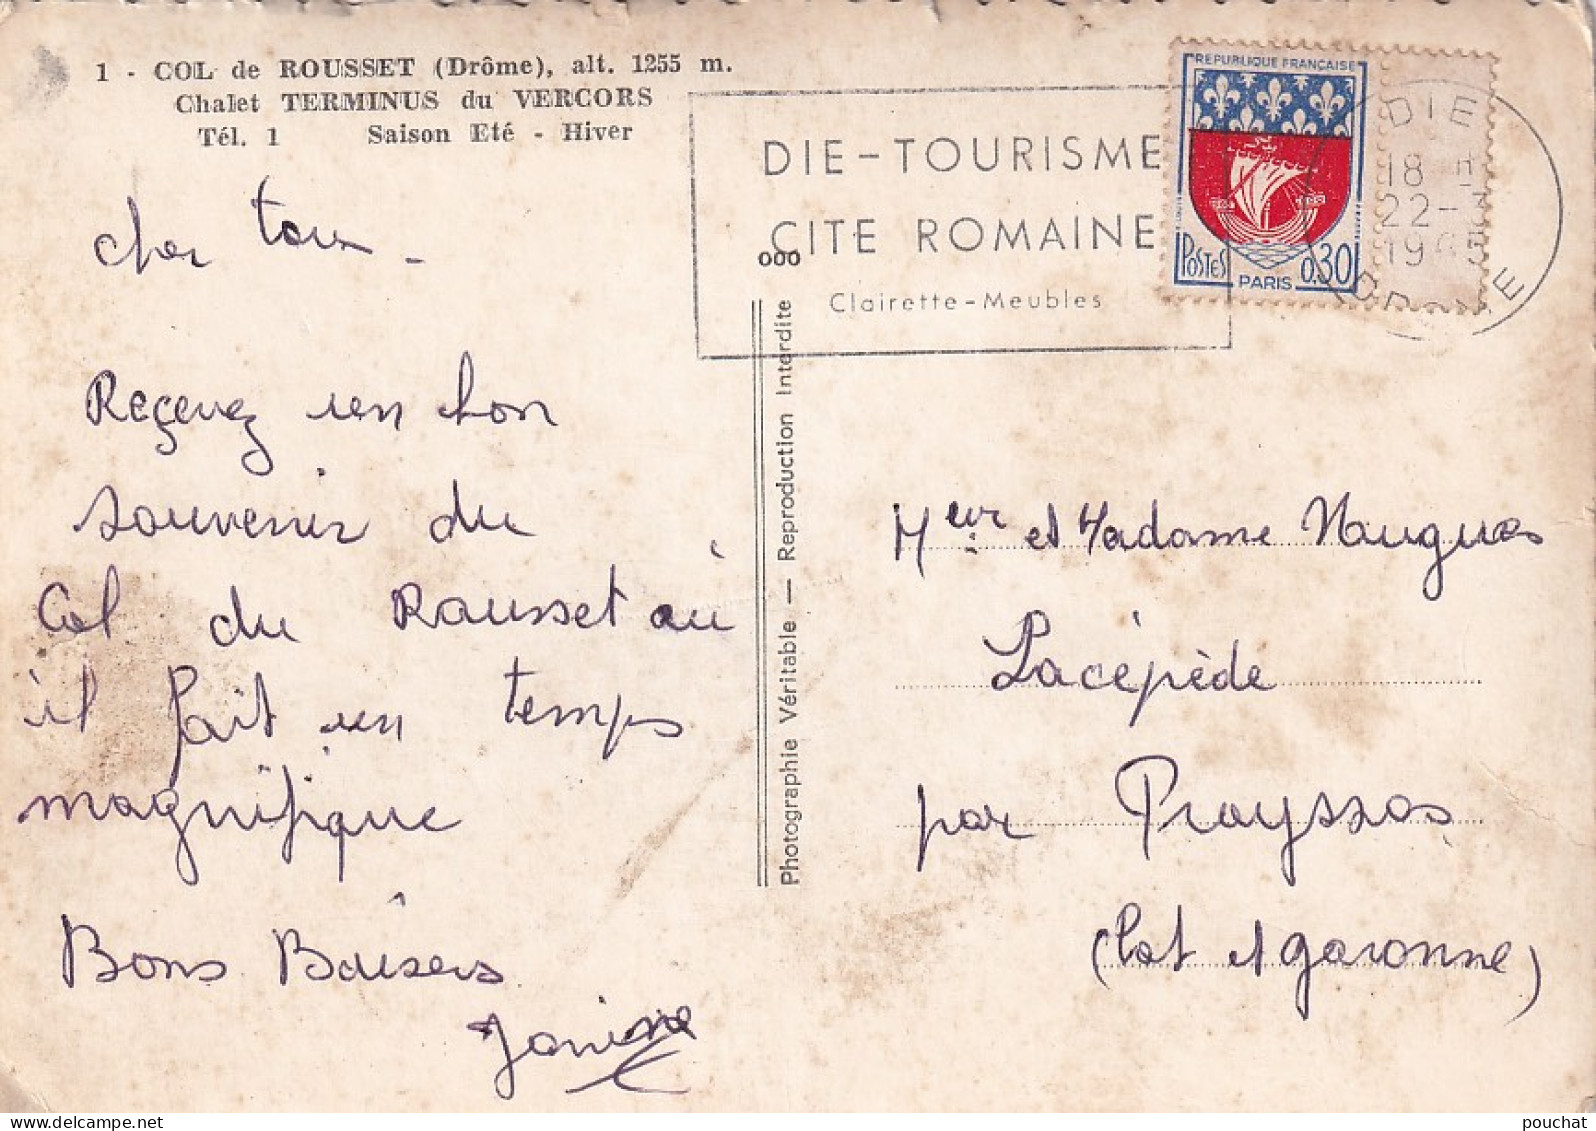 1 - COL de ROUSSET (Drôme), alt. 1255 m.
Chalet TERMINUS du VERCORS
Tél. 1 Saison Eté - Hiver
DIE - TOURISME
CITE ROMAINE
Clairette - Meubles
REPUBLIQUE FRANÇAISE
POSTES 0,30
PARIS
DIE
18 H
22 -
19
DROME
cher tous -
Reçevez un bon
souvenir du
Col du Rousset où
il fait un temps
magnifique
Bons Baisers
Janine
ooo
Photographie Véritable — Reproduction Interdite
Meur et Madame Naugues
Lacépède
par Prayssas
(Lot et garonne)
www.delcampe.net
pouchat